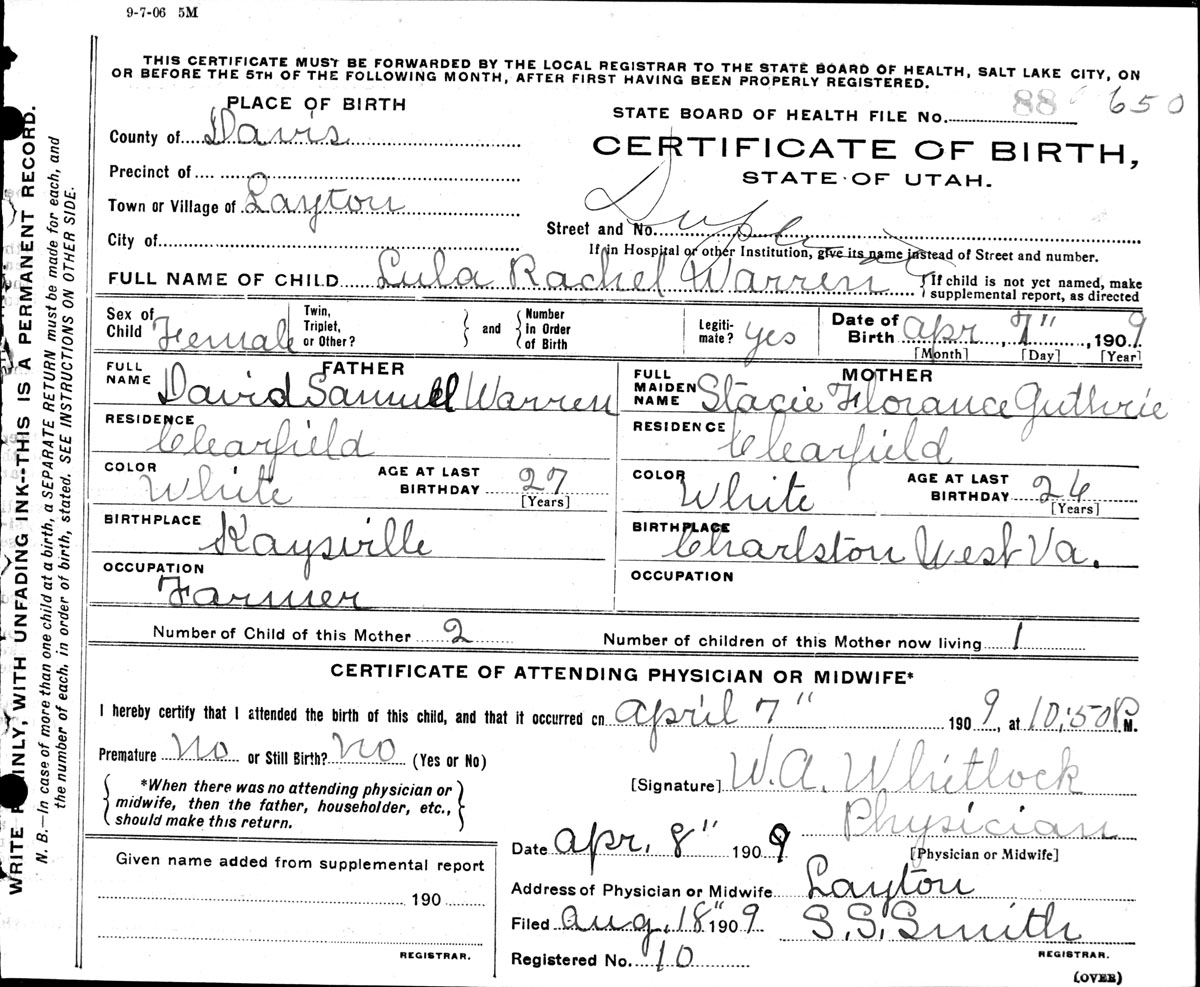 9-7-06 5M
THIS CERTIFICATE MUST BE FORWARDED BY THE LOCAL REGISTRAR TO THE STATE BOARD OF HEALTH, SALT LAKE CITY, ON
OR BEFORE THE 5TH OF THE FOLLOWING MONTH, AFTER FIRST HAVING BEEN PROPERLY REGISTERED.
PLACE OF BIRTH
STATE BOARD OF HEALTH FILE No. 88 650
County of Davis
CERTIFICATE OF BIRTH,
STATE OF UTAH.
Precinct of
Town or Village of Layton
Street and No.
City of
If in Hospital or other Institution, give its name instead of Street and number.
FULL NAME OF CHILD Lula Rachel Warren
If child is not yet named, make
supplemental report, as directed
Sex of Child Female
Twin, Triplet, or Other?
and
Number in Order of Birth
Legiti-mate? Yes
Date of Birth Apr 7", 1909
[Month] [Day] [Year]
FATHER
FULL NAME David Samuel Warren
MOTHER
FULL MAIDEN NAME Stacie Florance Guthrie
RESIDENCE Clearfield
RESIDENCE Clearfield
COLOR White AGE AT LAST BIRTHDAY 27 [Years]
COLOR White AGE AT LAST BIRTHDAY 26 [Years]
BIRTHPLACE Kaysville
BIRTHPLACE Charlston West Va.
OCCUPATION Farmer
OCCUPATION
Number of Child of this Mother 2 Number of children of this Mother now living 1
CERTIFICATE OF ATTENDING PHYSICIAN OR MIDWIFE*
I hereby certify that I attended the birth of this child, and that it occurred on April 7" 1909, at 10:50 P M.
Premature No or Still Birth? No (Yes or No)
[Signature] W.A. Whitlock
*When there was no attending physician or
midwife, then the father, householder, etc.,
should make this return.
Physician
[Physician or Midwife]
Date Apr. 8" 1909
Given name added from supplemental report
190
REGISTRAR.
Address of Physician or Midwife Layton
Filed Aug. 18" 1909 S.S. Smith
REGISTRAR.
Registered No. 10
(OVER)
WRITE PLAINLY, WITH UNFADING INK--THIS IS A PERMANENT RECORD.
N. B.—In case of more than one child at a birth, a SEPARATE RETURN must be made for each, and
the number of each, in order of birth, stated. SEE INSTRUCTIONS ON OTHER SIDE.